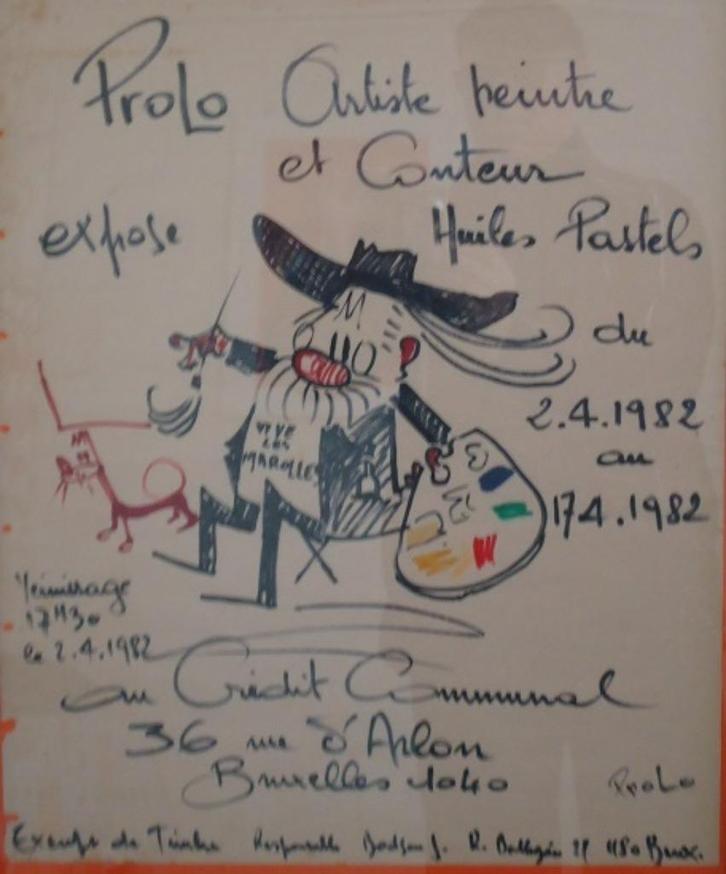 ProLo Artiste peintre
et Conteur
expose Huiles Pastels
du
2.4.1982
au
17 4.1982
VIVE
LES
MAROLLES
Vernissage
17H30
le 2.4.1982
au Crédit Communal
36 rue d'Arlon
Bruxelles 1040
ProLo
Exempt de Timbre Responsable J. R. Brux.